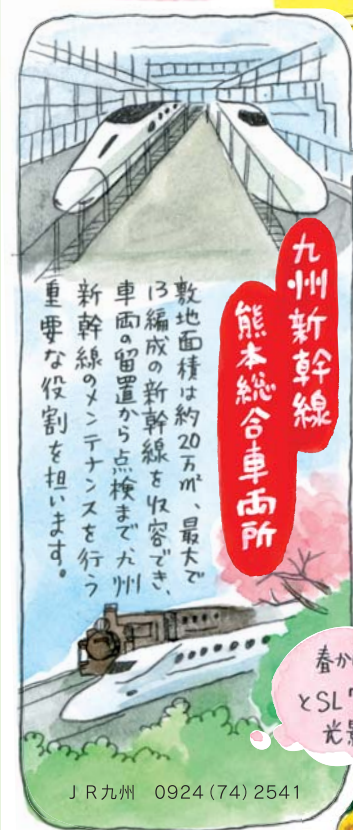 九州新幹線
熊本総合車両所
敷地面積は約20万㎡、最大で
13編成の新幹線を収容でき、
車両の留置から点検まで、九州
新幹線のメンテナンスを行う
重要な役割を担います。
春か
とSL
光景
JR九州 0924(74)2541